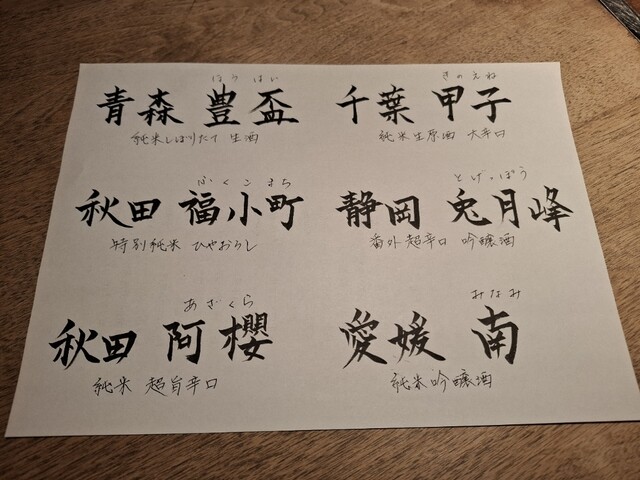 ほうはい
青森 豊盃
純米しぼりたて 生酒
ふくこまち
秋田 福小町
特別純米 ひやおろし
あざくら
秋田 阿櫻
純米 超旨辛口
きのえね
千葉 甲子
純米生原酒 大辛口
とげっぽう
静岡 兎月峰
番外超辛口 吟醸酒
みなみ
愛媛 南
純米吟醸酒